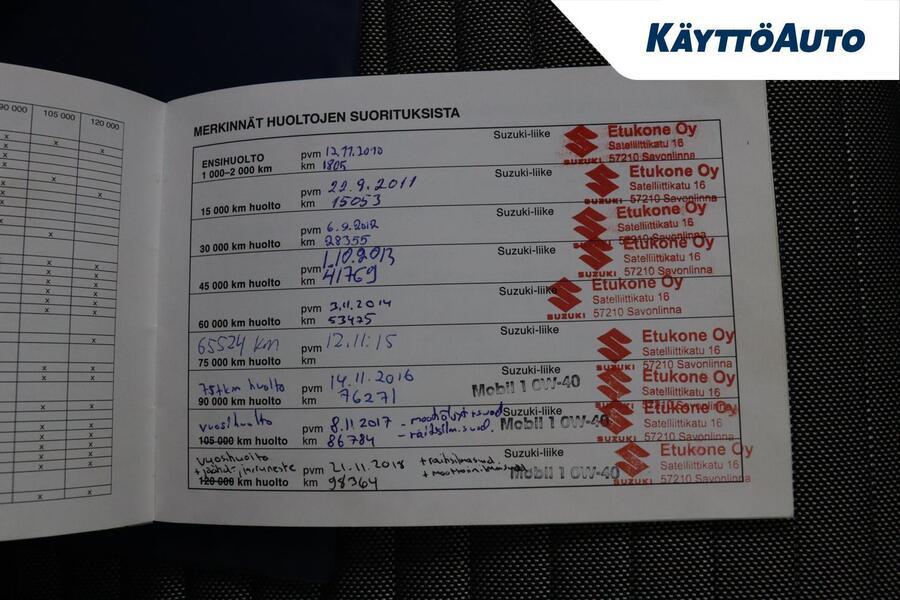 KÄYTTÖAUTO
90 000 105 000 120 000
MERKINNÄT HUOLTOJEN SUORITUKSISTA
ENSIHUOLTO
1 000–2 000 km
pvm 12.11.2010
km 1805
Suzuki-liike
SUZUKI Etukone Oy
Satelliittikatu 16
57210 Savonlinna
15 000 km huolto
pvm 22.9.2011
km 15053
Suzuki-liike
SUZUKI Etukone Oy
Satelliittikatu 16
57210 Savonlinna
30 000 km huolto
pvm 6.9.2012
km 28355
Suzuki-liike
SUZUKI Etukone Oy
Satelliittikatu 16
57210 Savonlinna
45 000 km huolto
pvm 1.10.2013
km 41769
Suzuki-liike
SUZUKI Etukone Oy
Satelliittikatu 16
57210 Savonlinna
60 000 km huolto
pvm 3.11.2014
km 53475
Suzuki-liike
SUZUKI Etukone Oy
Satelliittikatu 16
57210 Savonlinna
65524 km
75 000 km huolto
pvm 12.11.15
km
Suzuki-liike
Etukone Oy
Satelliittikatu 16
57210 Savonlinna
75tkm huolto
90 000 km huolto
pvm 14.11.2016
km 76271
Mobil 1 0W-40
Etukone Oy
Satelliittikatu 16
vuosihuolto
105 000 km huolto
pvm 8.11.2017
km 86784
Suzuki-liike
Mobil 1 0W-40
SUZUKI Etukone Oy
Satelliittikatu 16
57210 Savonlinna
vuosihuolto
+ jäähd.
120 000 km huolto
pvm 21.11.2018
km 98364
Suzuki-liike
Mobil 1 0W-40
SUZUKI Etukone Oy
Satelliittikatu 16
57210 Savonlinna